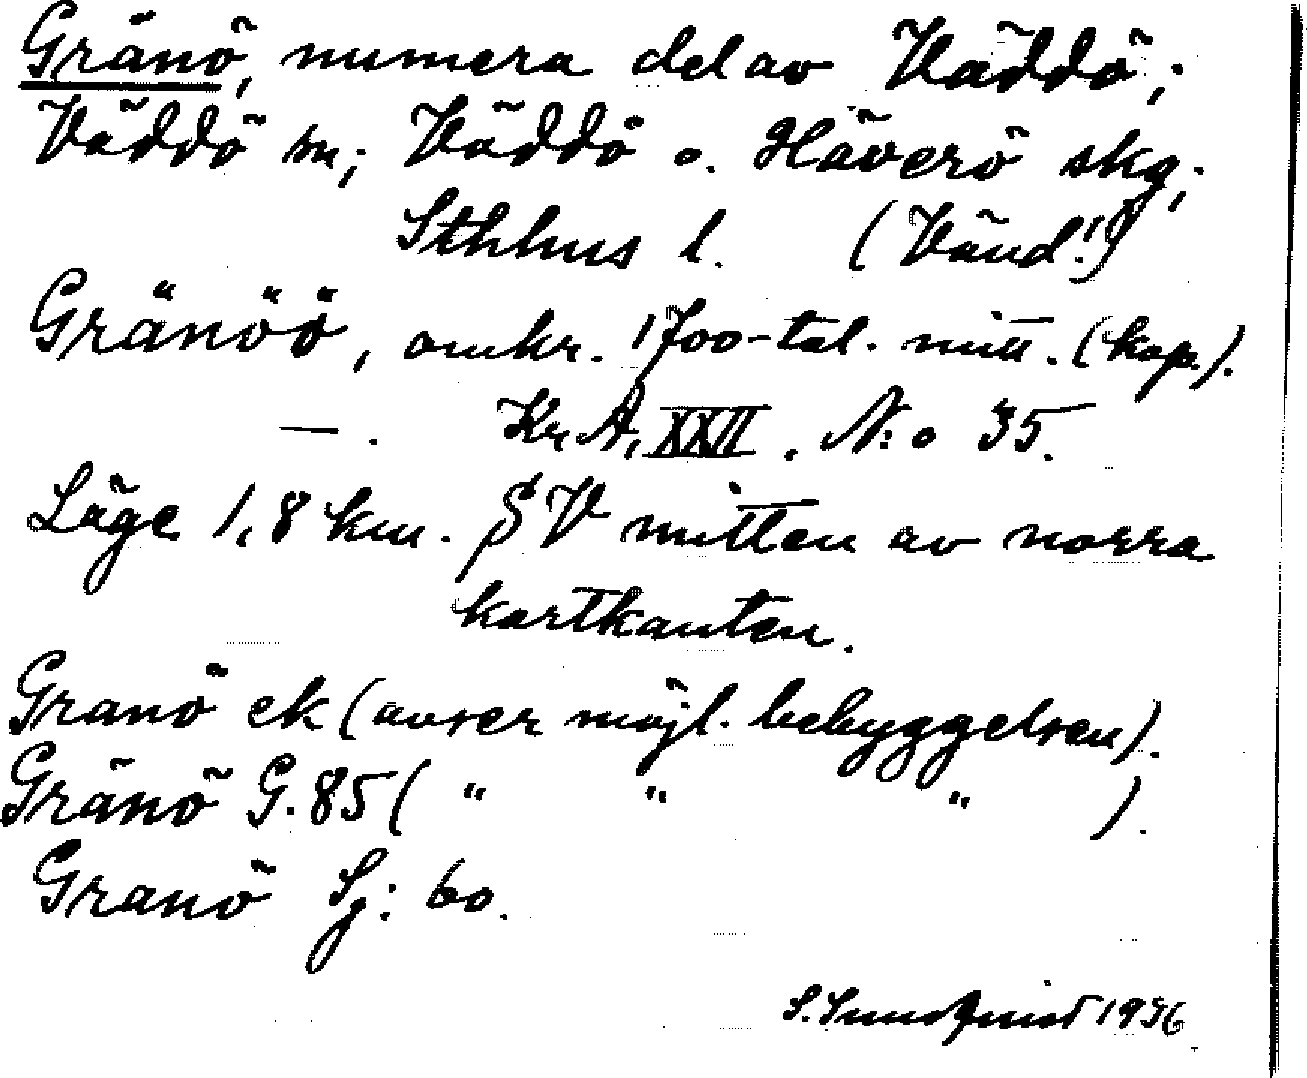 Gränö, numera del av Väddö;
Väddö sn; Väddö o. Häverö skg;
Sthlms l. (Vänd!)
Gränöö, omkr. 1700-tal. mitt. (kop.).
—. Kr.A, XXII. N:o 35.
Läge 1,8 km. SV mitten av norra
kartkanten.
Granö ek (avser möjl. bebyggelsen).
Gränö G.85 ( " " " ).
Granö Sj: 60.
S. Sundquist 1936